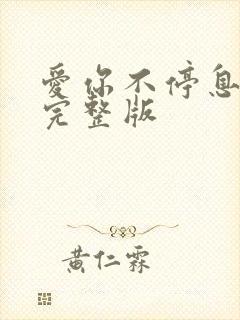 愛你不停息
完整版
黄仁霖